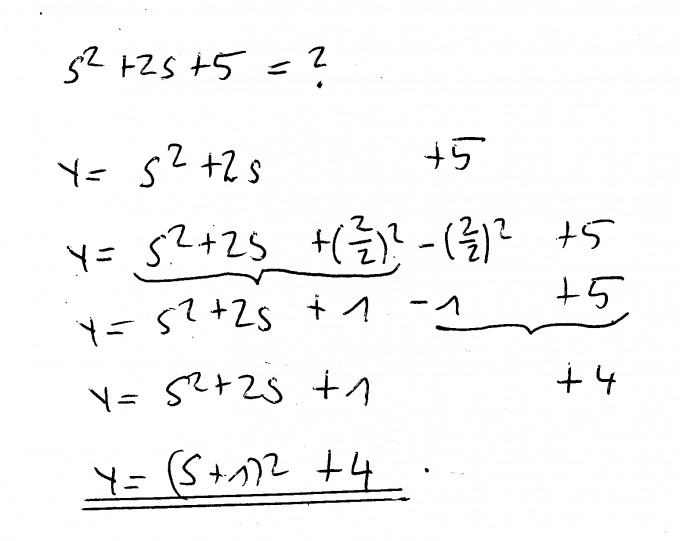 s² +2s +5 = ?
Y= s² +2s +5
Y= s²+2s +(2/2)² -(2/2)² +5
Y= s²+2s +1 -1 +5
Y= s²+2s +1 +4
Y= (s+1)² +4